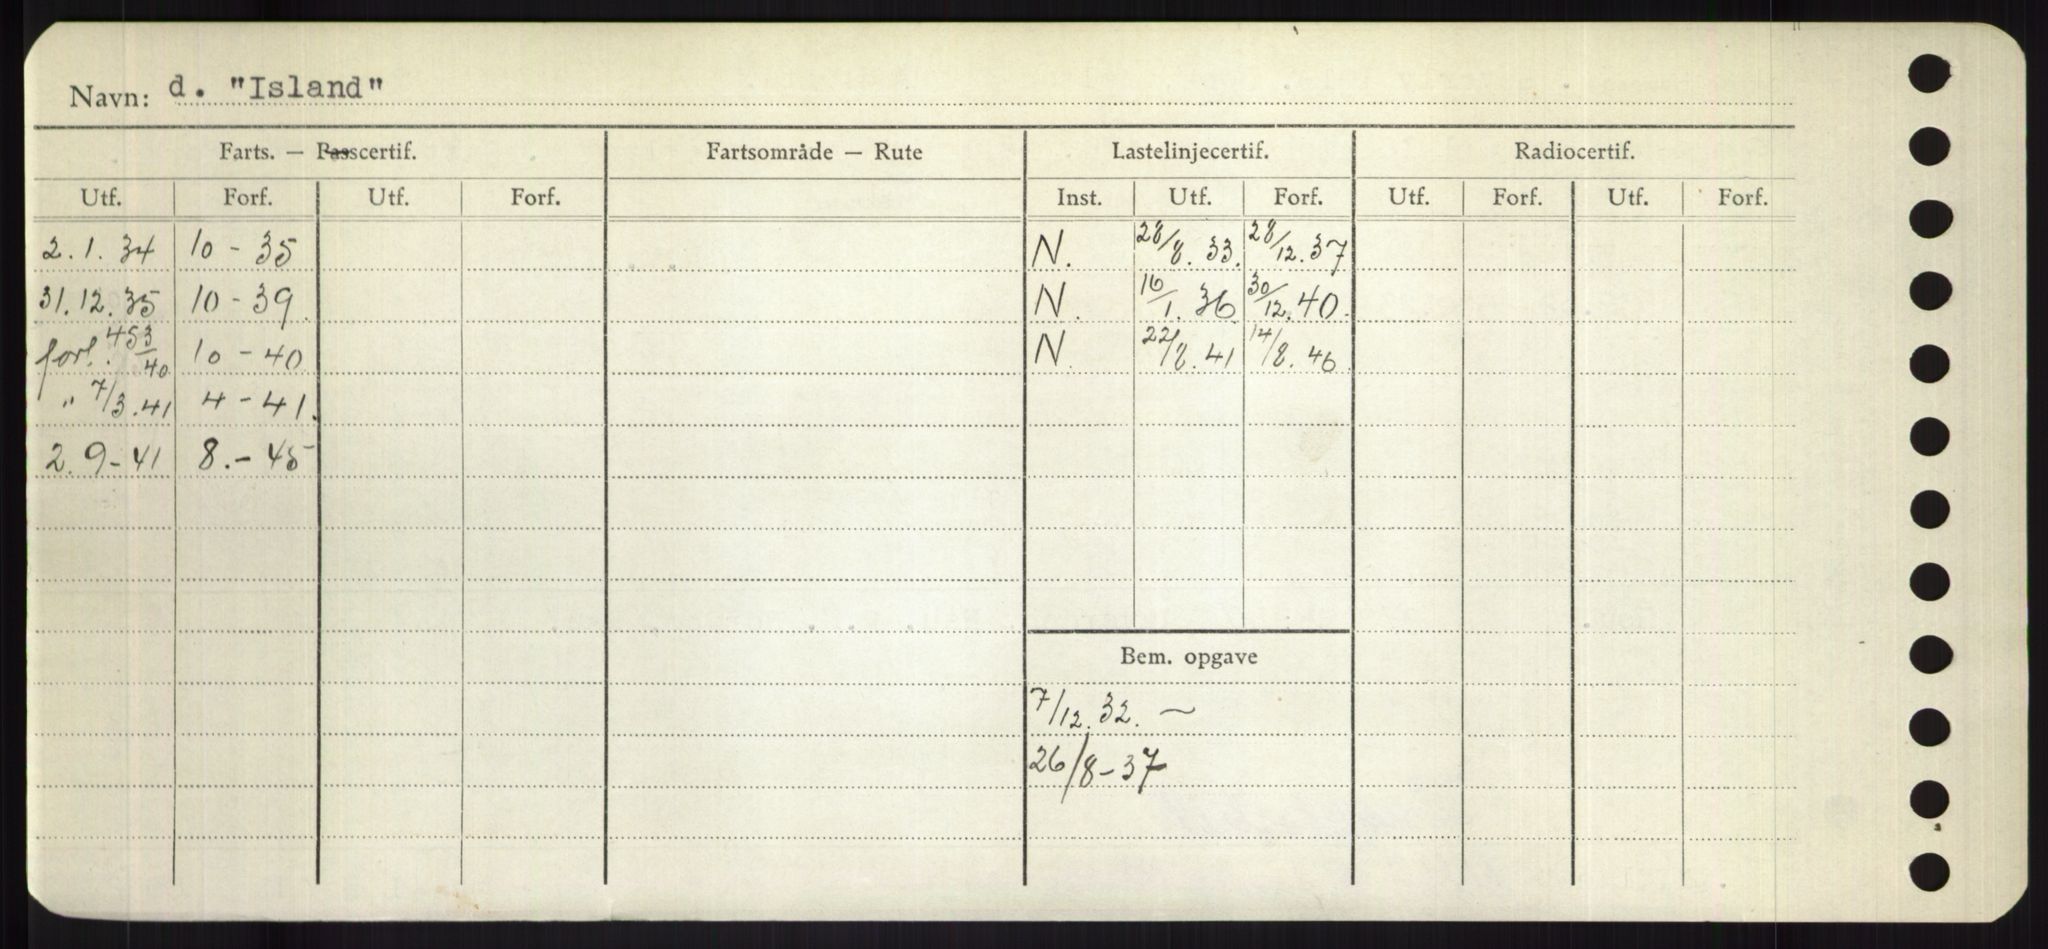 Navn: d. "Island"
Farts. — Passcertif. Fartsområde — Rute Lastelinjecertif. Radiocertif.
Utf. Forf. Utf. Forf. Inst. Utf. Forf. Utf. Forf. Utf. Forf.
2.1.34 10-35 N. 28/8.33. 28/12.37
31.12.35 10-39. N. 16/1.36. 30/12.40.
forl. 453/40 10-40 N. 22/8.41 14/8.46.
" 7/3.41 4-41.
2.9-41 8.-45
Bem. opgave
7/12.32. ~
26/8-37